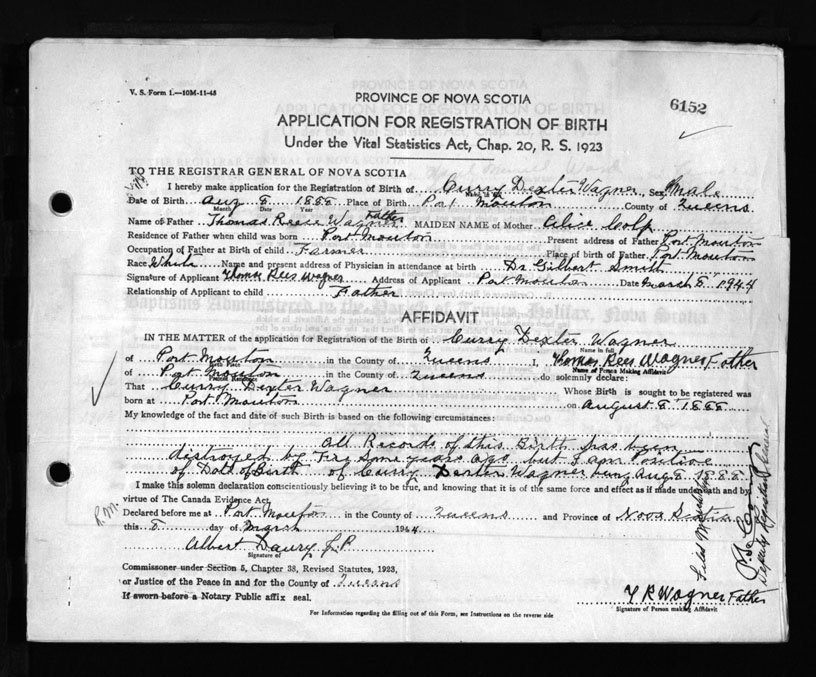 V. S. Form 1.—10M-11-45
6152
PROVINCE OF NOVA SCOTIA
APPLICATION FOR REGISTRATION OF BIRTH
Under the Vital Statistics Act, Chap. 20, R. S. 1923
TO THE REGISTRAR GENERAL OF NOVA SCOTIA
I hereby make application for the Registration of Birth of Curry Dexter Wagner Sex Male
Name in full
Date of Birth Aug 8 1888 Place of Birth Port Mouton County of Queens
Month Date Year
Name of Father Thomas Reese Wagner Father MAIDEN NAME of Mother Alice Colp
Residence of Father when child was born Port Mouton Present address of Father Port Mouton
Occupation of Father at Birth of child Farmer Place of birth of Father Port Mouton
Race White Name and present address of Physician in attendance at birth Dr Gilbert Smith
Signature of Applicant Thomas Rees Wagner Address of Applicant Port Mouton Date March 8 1944
Relationship of Applicant to child Father
AFFIDAVIT
IN THE MATTER of the application for Registration of the Birth of Curry Dexter Wagner
Name in full
of Port Mouton in the County of Queens I, Thomas Rees Wagner Father
Birth Place Name of Person Making Affidavit
of Port Mouton in the County of Queens do solemnly declare:
Present Residence
That Curry Dexter Wagner Whose Birth is sought to be registered was
born at Port Mouton on August 8 1888
My knowledge of the fact and date of such Birth is based on the following circumstances:
All Records of this Birth has been
distroyed by Fire some years ago but I am Positive
of Date of Birth of Curry Dexter Wagner being Aug 8 1888
I make this solemn declaration conscientiously believing it to be true, and knowing that it is of the same force and effect as if made under oath and by
virtue of The Canada Evidence Act.
Declared before me at Port Mouton in the County of Queens and Province of Nova Scotia
this 8 day of March 1944
Albert Daury J.P.
Signature of
Commissioner under Section 5, Chapter 38, Revised Statutes, 1923,
or Justice of the Peace in and for the County of Queens
If sworn before a Notary Public affix seal.
T R Wagner Father
Signature of Person making Affidavit
For Information regarding the filling out of this Form, see Instructions on the reverse side
Deputy Registrar General